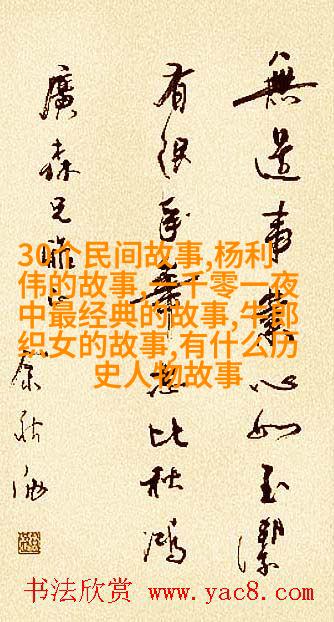 無邊事業心如玉潔
有限年華志比秋鴻
廣森兄雅正
30个民间故事,杨利
伟的故事,一千零一夜
中最经典的故事,牛郎
织女的故事,有什么历
史人物故事
书法欣赏 www.yac8.com